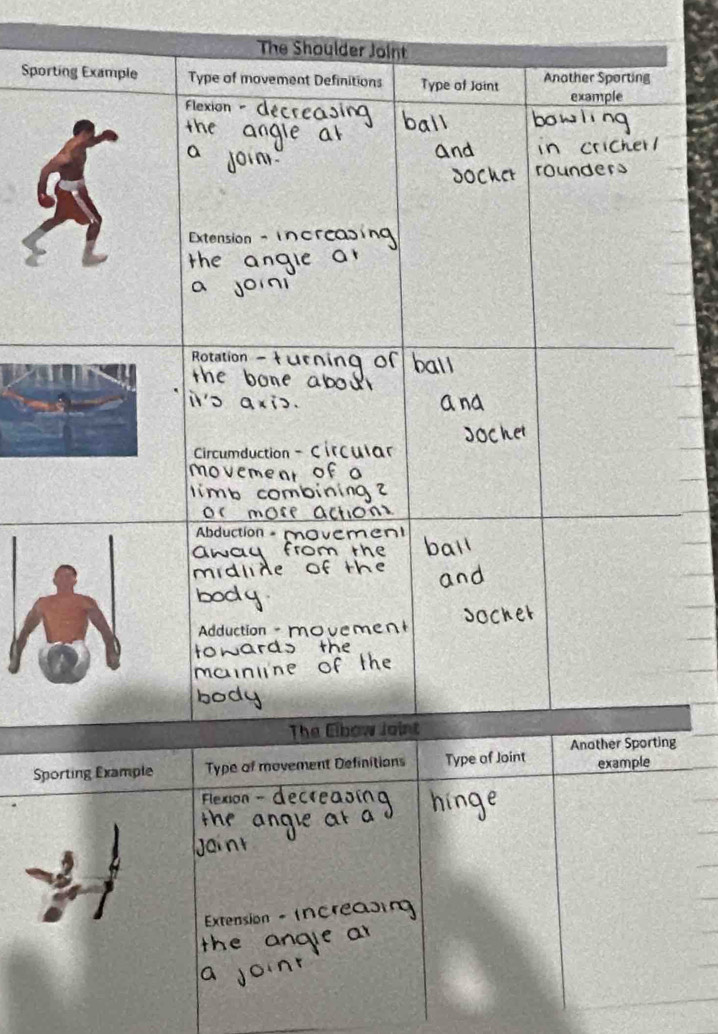 The Shoulder Joint
Sporting Example
Type of movement Definitions
Type of Joint
Another Sporting
example
Flexion - decreasing
the angle at
a joint.
ball
and
socket
bowling
in cricket/
rounders
Extension - increasing
the angle at
a joint
Rotation - turning of
the bone about
it's axis.
ball
and
socket
Circumduction - circular
movement of a
limb combining 2
or more actions
Abduction - movement
away from the
midline of the
body.
ball
and
socket
Adduction - movement
towards the
mainline of the
body
The Elbow Joint
Sporting Example
Type of movement Definitions
Type of Joint
Another Sporting
example
Flexion - decreasing
the angle at a
joint
hinge
Extension - increasing
the angle at
a joint